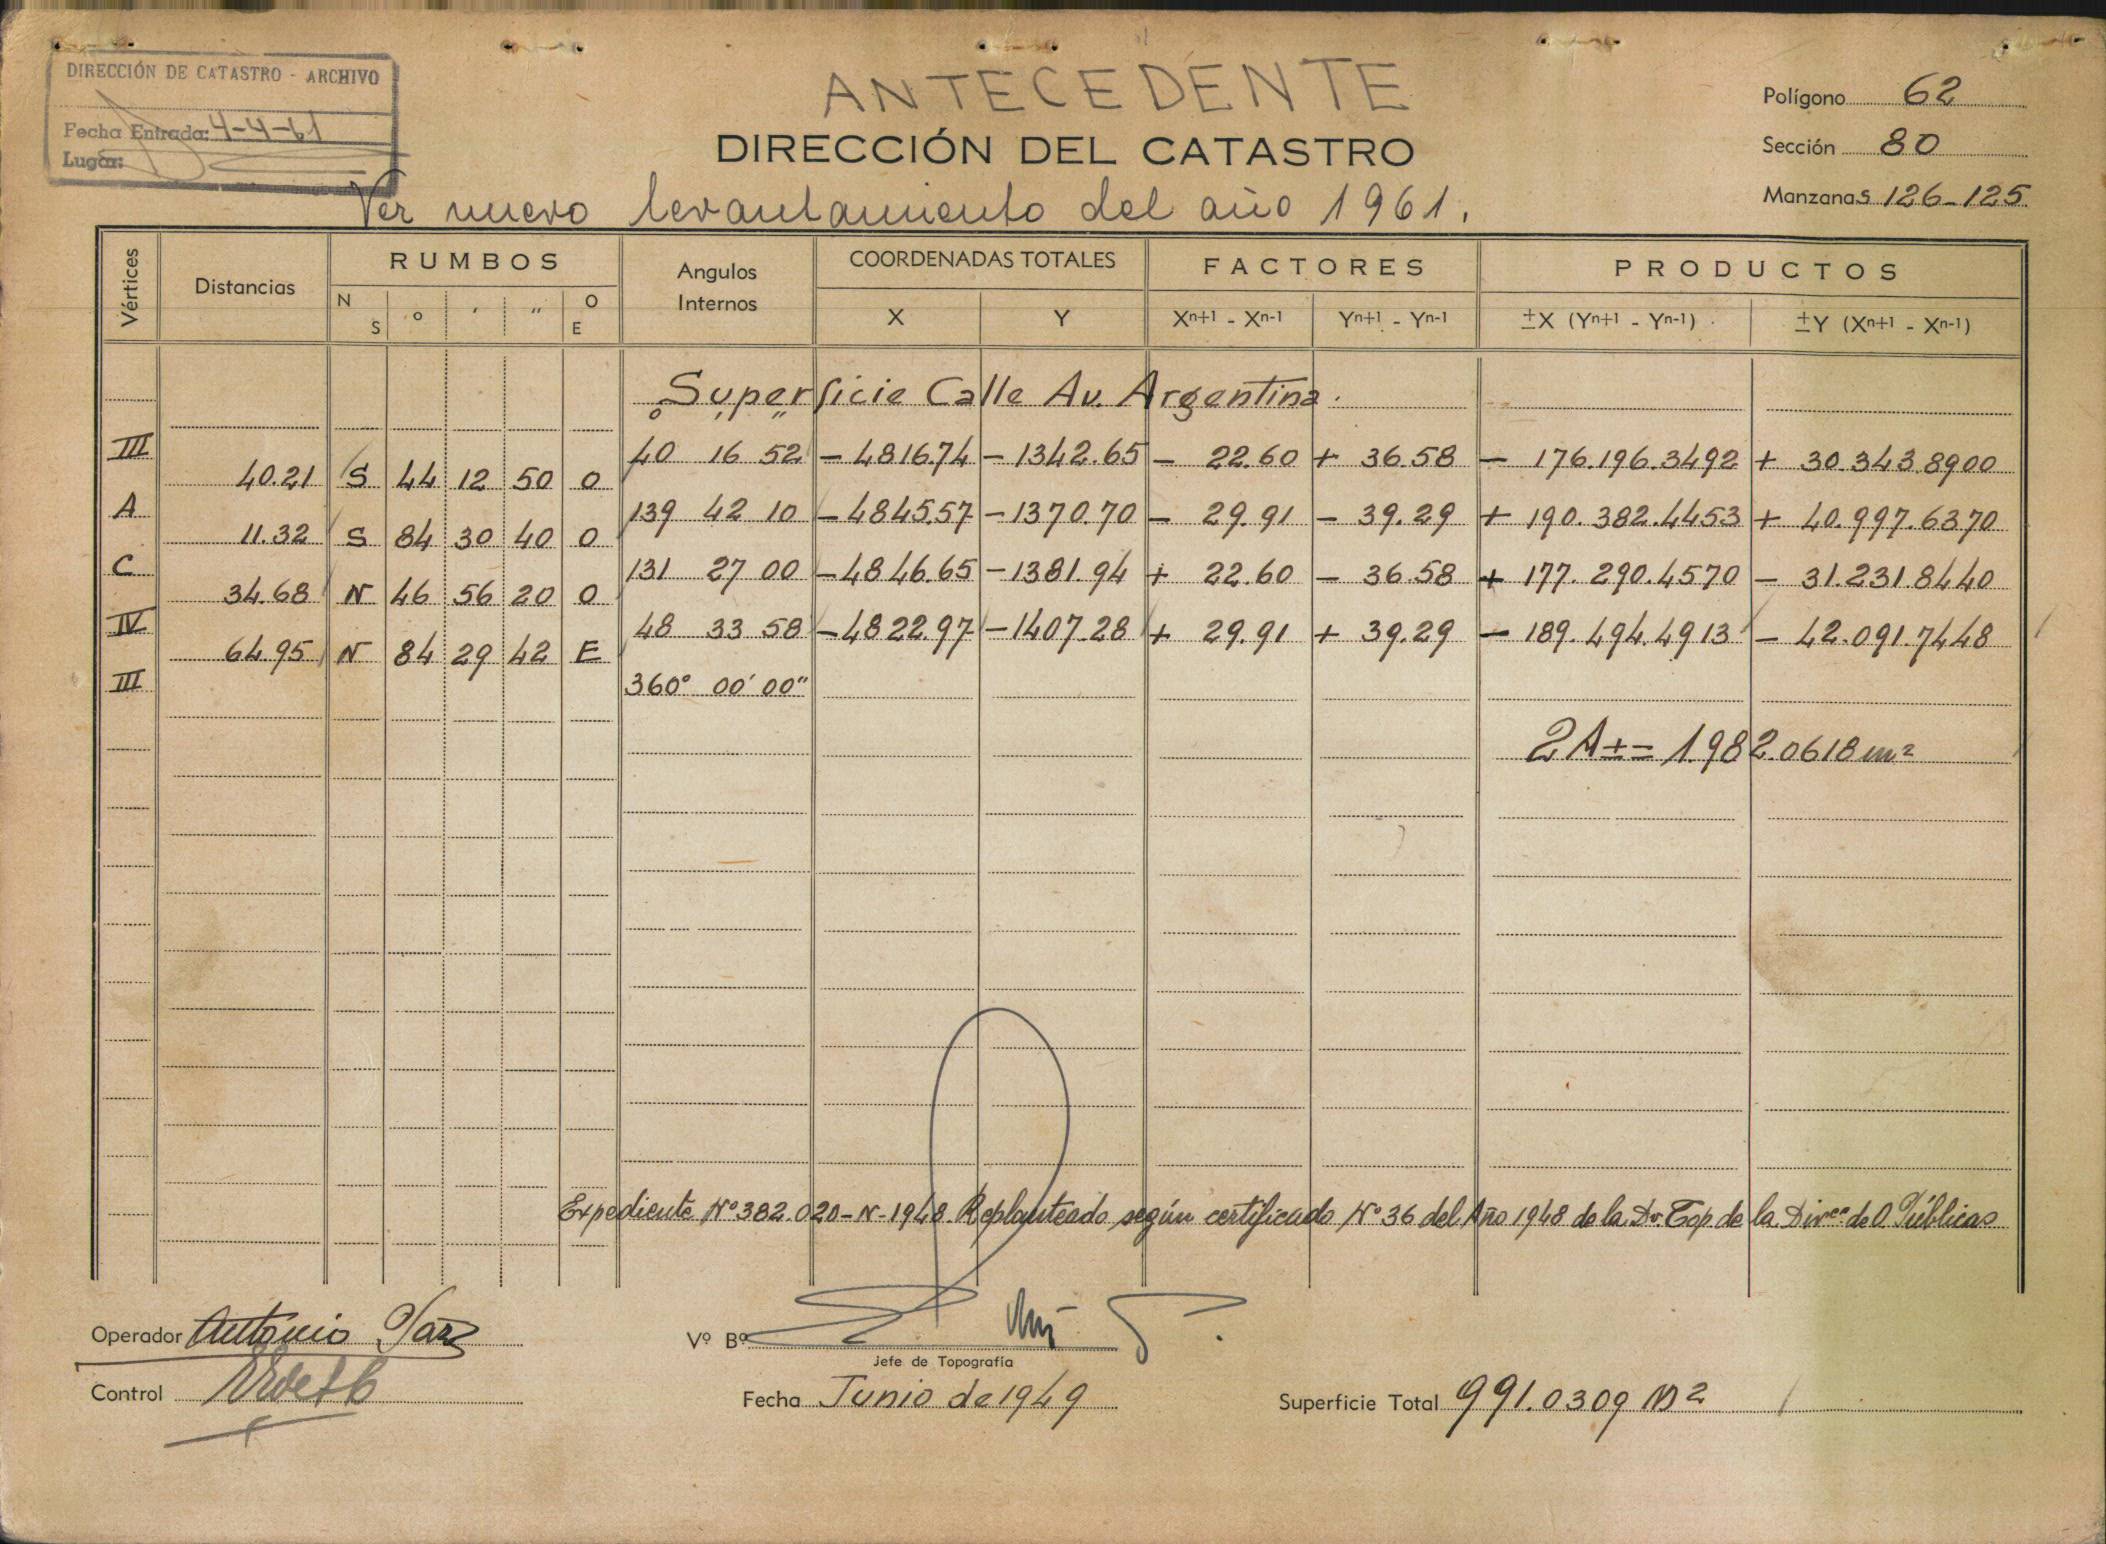 DIRECCIÓN DE CATASTRO - ARCHIVO
Fecha Entrada: 4-4-61
Lugar:
ANTECEDENTE
DIRECCIÓN DEL CATASTRO
Ver nuevo levantamiento del año 1961.
Polígono 62
Sección 80
Manzanas 126-125
Vértices Distancias RUMBOS Angulos Internos COORDENADAS TOTALES FACTORES PRODUCTOS
N S ° ' " O E X Y Xn+1 - Xn-1 Yn+1 - Yn-1 ±X (Yn+1 - Yn-1) ±Y (Xn+1 - Xn-1)
Superficie Calle Av. Argentina.
° ' "
III 40 16 52 - 4816.74 - 1342.65 - 22.60 + 36.58 - 176.196.3492 + 30.343.8900
40.21 S 44 12 50 O
A 139 42 10 - 4845.57 - 1370.70 - 29.91 - 39.29 + 190.382.4453 + 40.997.6370
11.32 S 84 30 40 O
C 131 27 00 - 4846.65 - 1381.94 + 22.60 - 36.58 + 177.290.4570 - 31.231.8440
34.68 N 46 56 20 O
IV 48 33 58 - 4822.97 - 1407.28 + 29.91 + 39.29 - 189.494.4913 - 42.091.7448
64.95 N 84 29 42 E
III 360° 00' 00"
2A ± = 1.982.0618 m²
Expediente Nº 382.020-N-1948. Replanteado según certificado Nº 36 del Año 1948 de la Dv. Top. de la Direc. de O. Públicas
Operador Antonio Paz
Vº Bº
Jefe de Topografía
Control
Fecha Junio de 1949
Superficie Total 991.0309 M2